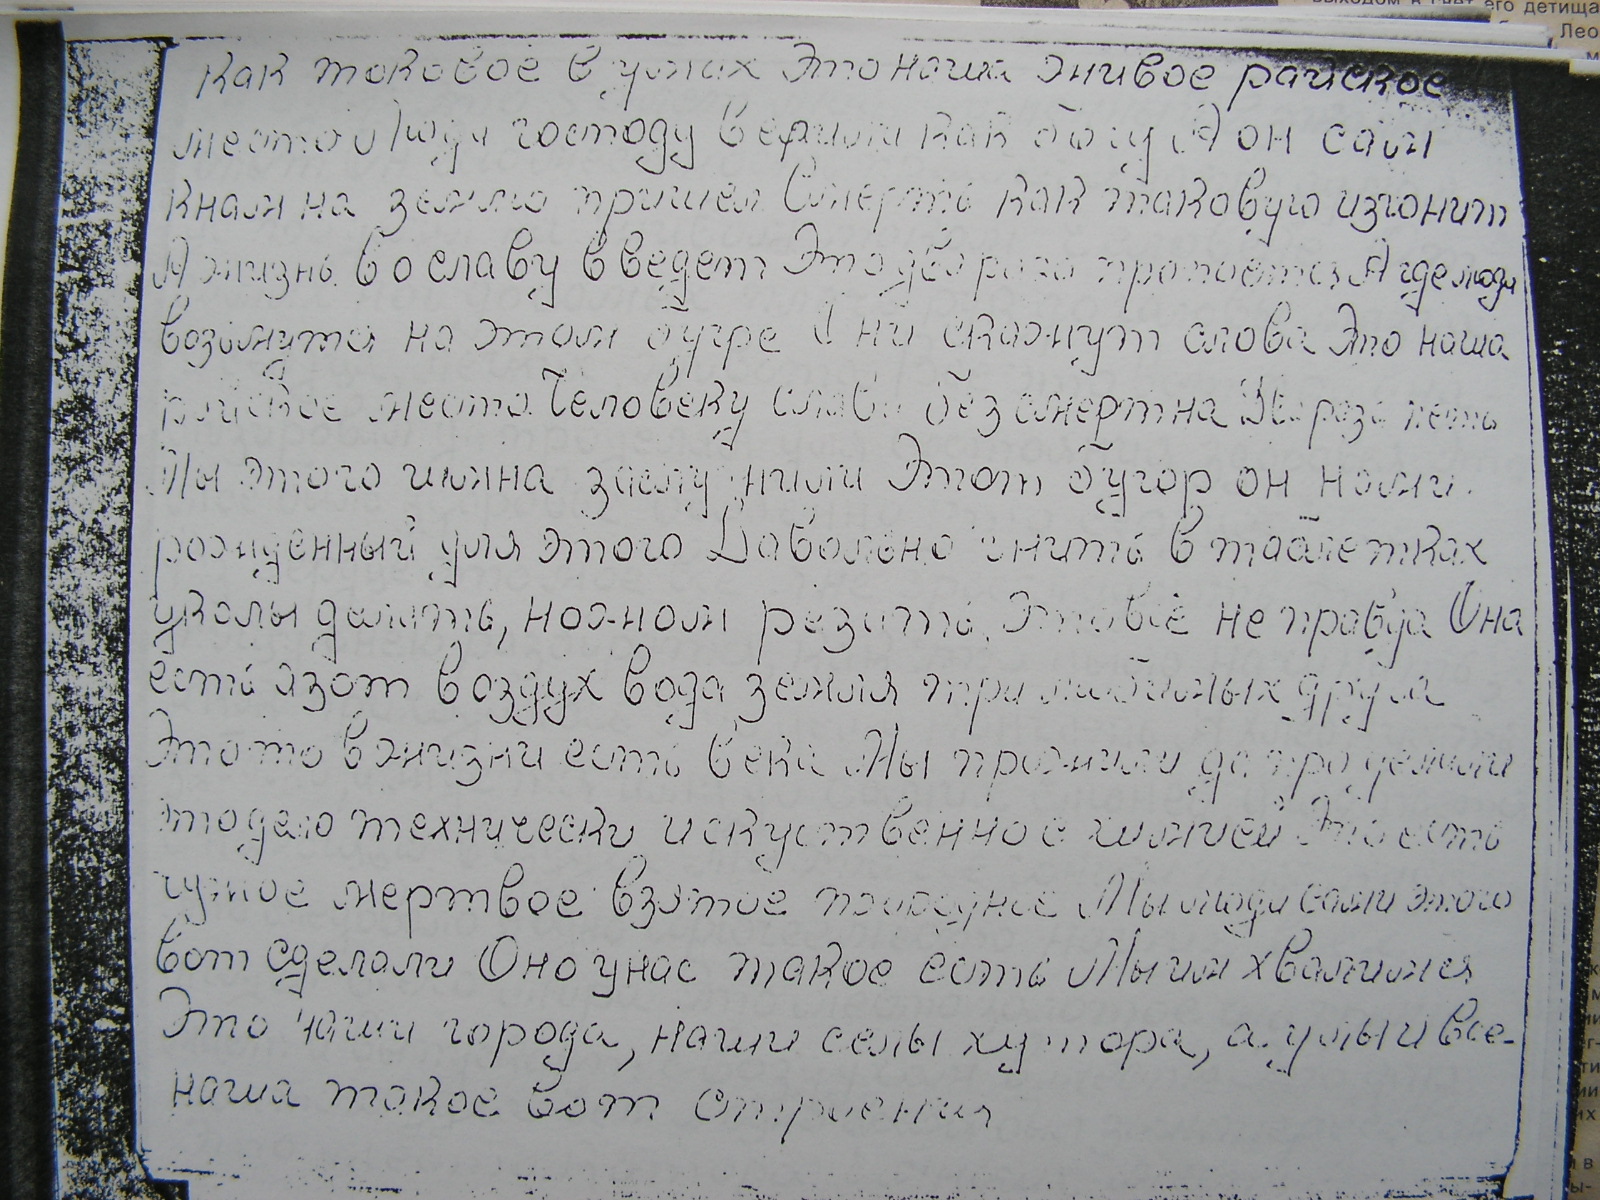 выходом в свет его детища
Лео
как токовое в умах Это наша живое райское
место Люди господу верили как богу А он сам
к нам на землю пришел Смерть как таковую изгонит
А жизнь во славу введет Это два раза пропоется А где люди
возьмутся на этом бугре Они скажут слова Это наша
райское место Человеку слава безсмертна Два раза петь
Мы этого имна заслужили Этот бугор он нами
рожденный для этого Давольно жить в таблетках
уколы делать, ножном резить. Это всё не правда Она
есть азот воздух вода земля три любимых друга
Это то в жизни есть века Мы прожили да проделали
это дело технически искуственное химией Это есть
чужое мертвое взятое природное Мы люди сами этого
вот сделали Оно у нас такое есть Мы им хвалимся
Это наши города, наши селы хутора, аулы и все
наша такое вот строения